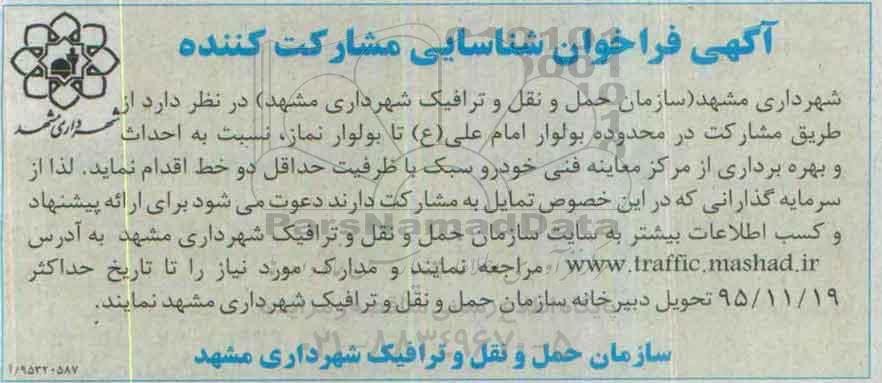 آگهی فراخوان شناسایی مشارکت کننده
شهرداری مشهد
شهرداری مشهد(سازمان حمل و نقل و ترافیک شهرداری مشهد) در نظر دارد از
طریق مشارکت در محدوده بولوار امام علی(ع) تا بولوار نماز، نسبت به احداث
و بهره برداری از مرکز معاینه فنی خودرو سبک با ظرفیت حداقل دو خط اقدام نماید. لذا از
سرمایه گذارانی که در این خصوص تمایل به مشارکت دارند دعوت می شود برای ارائه پیشنهاد
و کسب اطلاعات بیشتر به سایت سازمان حمل و نقل و ترافیک شهرداری مشهد به آدرس
www.traffic.mashad.ir مراجعه نمایند و مدارک مورد نیاز را تا تاریخ حداکثر
۹۵/۱۱/۱۹ تحویل دبیرخانه سازمان حمل و نقل و ترافیک شهرداری مشهد نمایند.
سازمان حمل و نقل و ترافیک شهرداری مشهد
۱/۹۵۳۲۰۵۸۷
ParsNamadData
۰۲۱-۸۸۳۴۹۶۷۰-۵